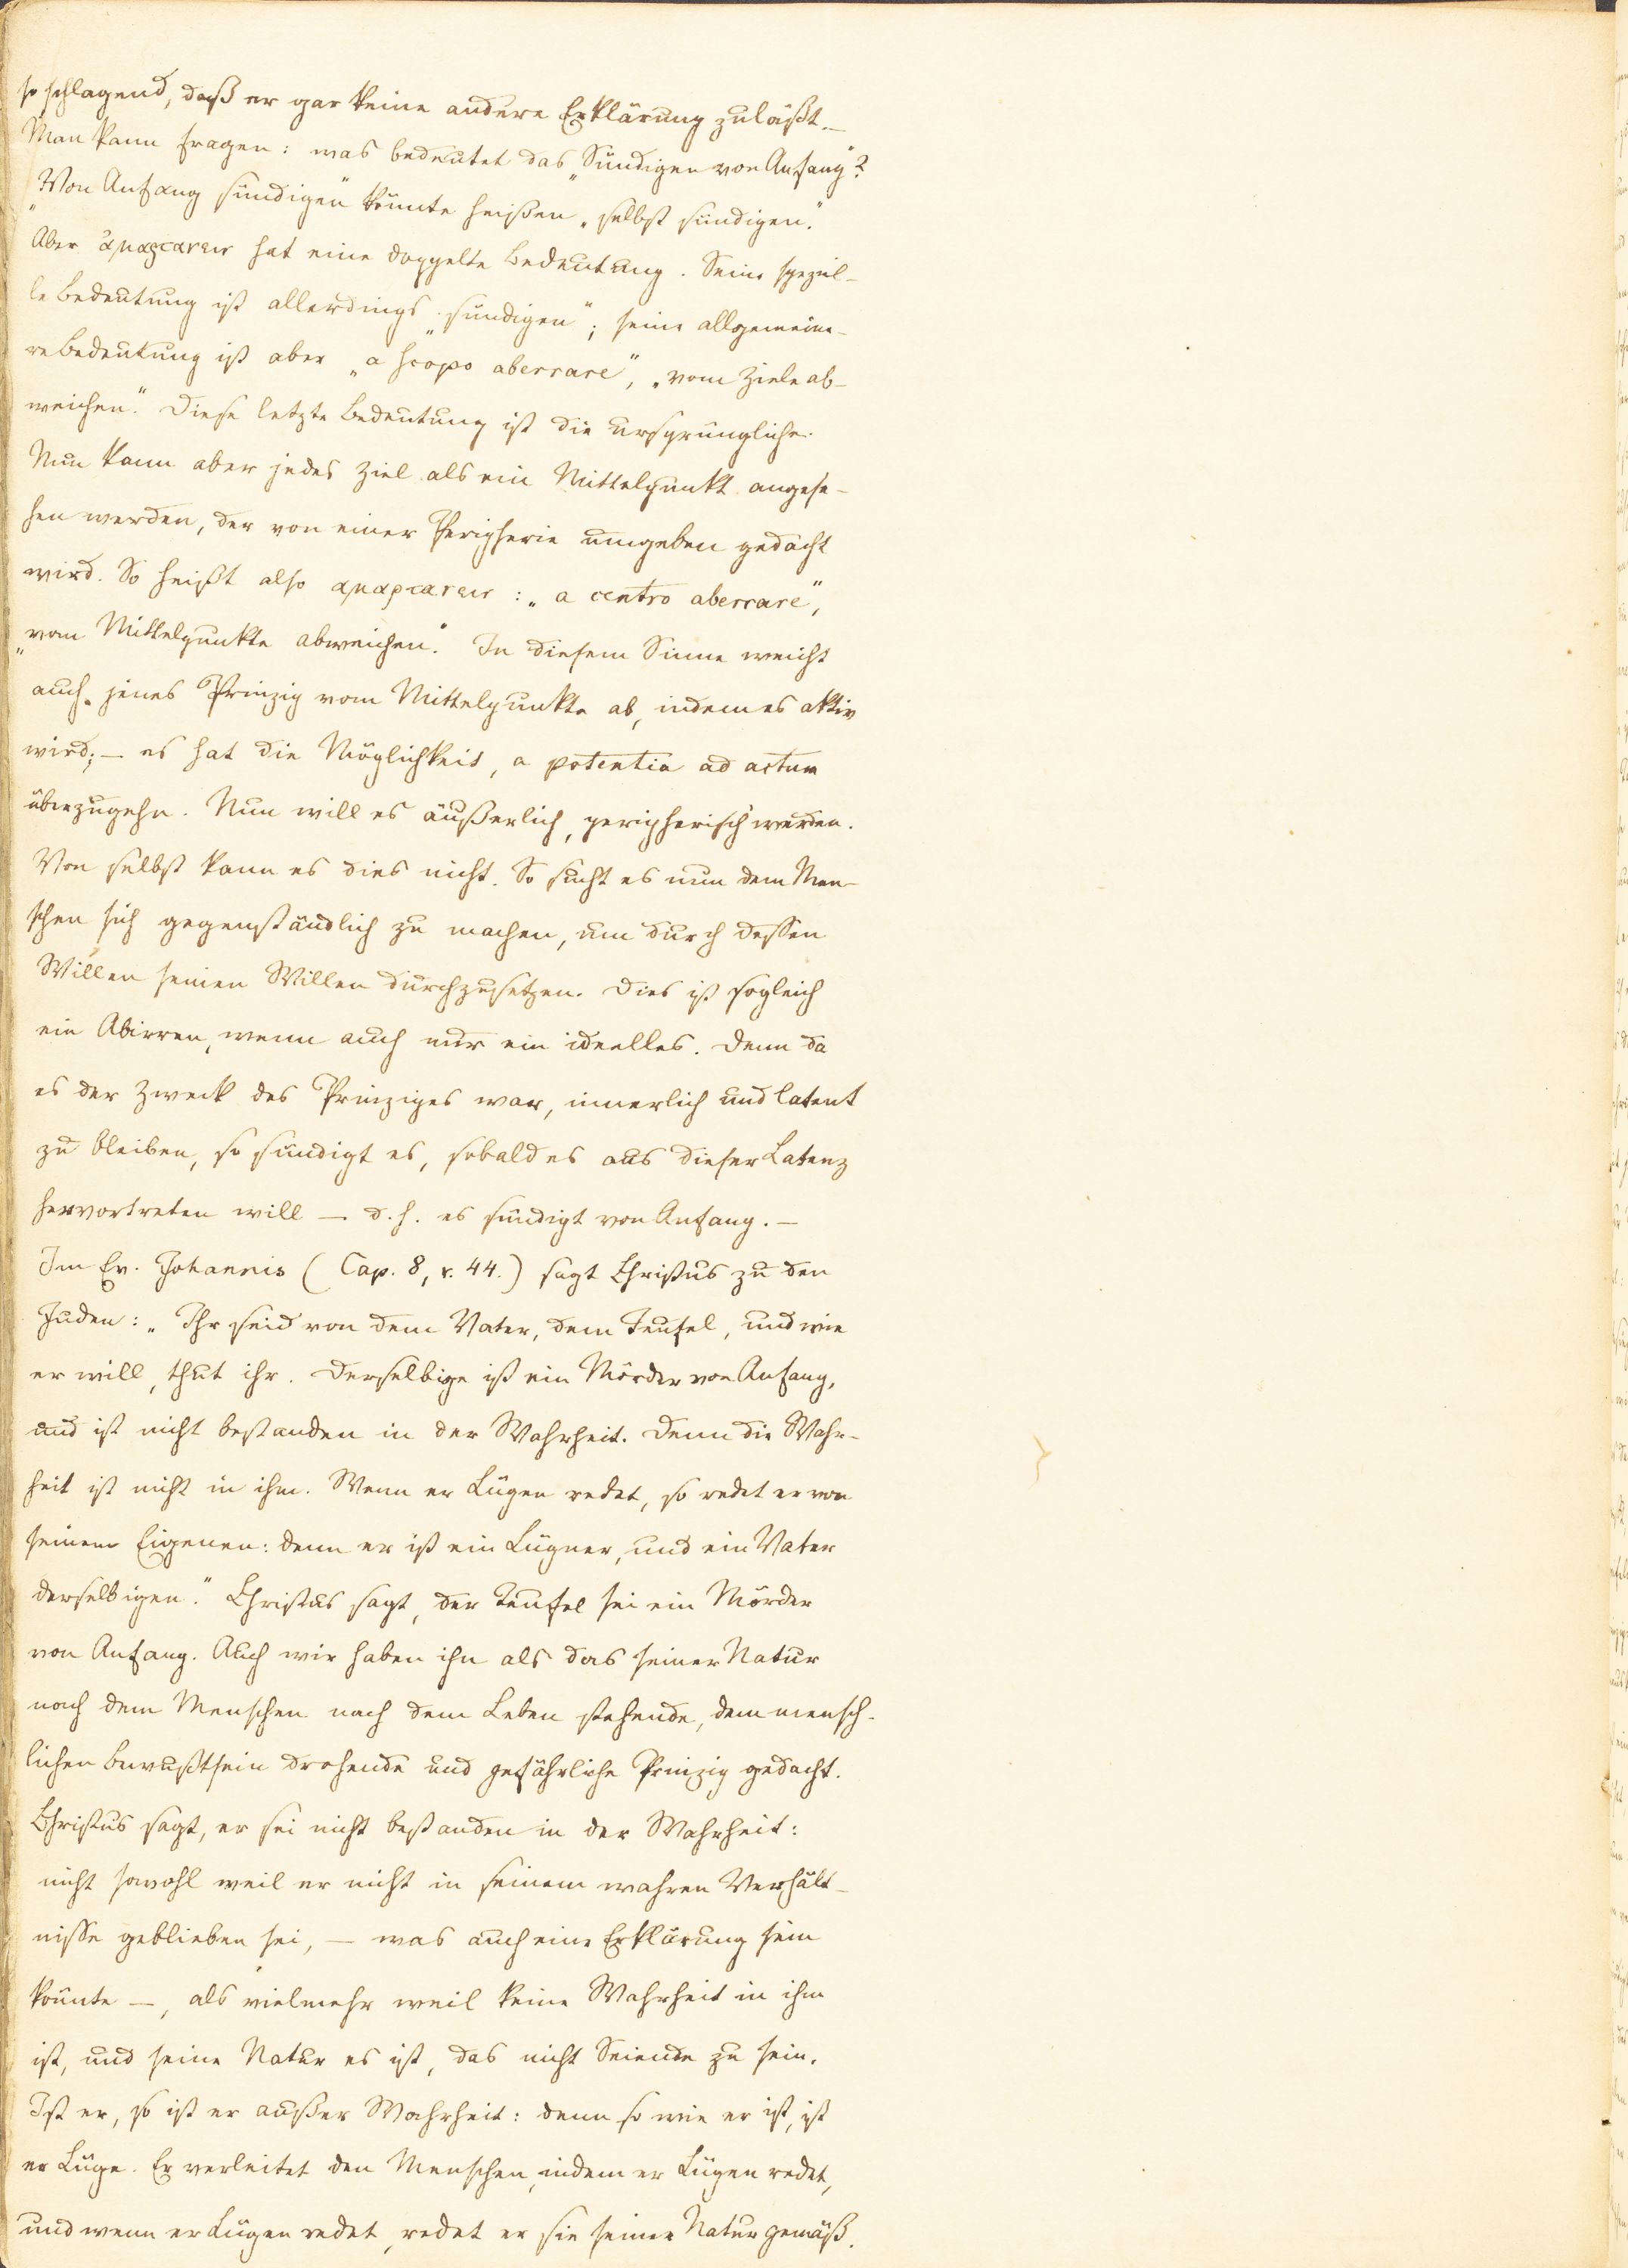 so schlagend, daß er gar keine andere Erklärung zuläßt. —
Man kann fragen: was bedeutet das „Sündigen von Anfang"?
„Von Anfang sündigen" könnte heißen „selbst sündigen."
Aber ἁμαρτανειν hat eine doppelte Bedeutung. Seine speziel-
le Bedeutung ist allerdings „sündigen"; seine allgemeine-
re Bedeutung ist aber „a scopo aberrare", „vom Ziele ab-
weichen." Diese letzte Bedeutung ist die ursprüngliche.
Nun kann aber jedes Ziel als ein Mittelpunkt angese-
hen werden, der von einer Peripherie umgeben gedacht
wird. So heißt also αμαρτανειν: „a centro aberrare",
„vom Mittelpunkte abweichen." In diesem Sinne weicht
auch jenes Prinzip vom Mittelpunkte ab, indem es aktiv
wird; — es hat die Möglichkeit, a potentia ad actum
überzugehn. Nun will es äußerlich, peripherisch werden.
Von selbst kann es dies nicht. So sucht es nun dem Men-
schen sich gegenständlich zu machen, um durch dessen
Willen seinen Willen durchzusetzen. Dies ist sogleich
ein Abirren, wenn auch nur ein ideelles. Denn da
es der Zweck des Prinzipes war, innerlich und latent
zu bleiben, so sündigt es, sobald es aus dieser Latenz
hervortreten will — d. h. es sündigt von Anfang. —
Im Ev. Johannis (Cap. 8, v. 44.) sagt Christus zu den
Juden: „Ihr seid von dem Vater, dem Teufel, und wie
er will, thut ihr. Derselbige ist ein Mörder von Anfang,
und ist nicht bestanden in der Wahrheit. Denn die Wahr-
heit ist nicht in ihm. Wenn er Lügen redet, so redet er von
seinem Eigenen: denn er ist ein Lügner, und ein Vater
derselbigen." Christus sagt, der Teufel sei ein Mörder
von Anfang. Auch wir haben ihn als das seiner Natur
nach dem Menschen nach dem Leben stehende, dem mensch-
lichen Bewußtsein drohende und gefährliche Prinzip gedacht.
Christus sagt, er sei nicht bestanden in der Wahrheit:
nicht sowohl weil er nicht in seinem wahren Verhält-
nisse geblieben sei, — was auch eine Erklärung sein
könnte —, als vielmehr weil keine Wahrheit in ihm
ist, und seine Natur es ist, das nicht Seiende zu sein.
Ist er, so ist er außer Wahrheit: denn so wie er ist, ist
er Lüge. Er verleitet den Menschen, indem er Lügen redet,
und wenn er Lügen redet, redet er sie seiner Natur gemäß.